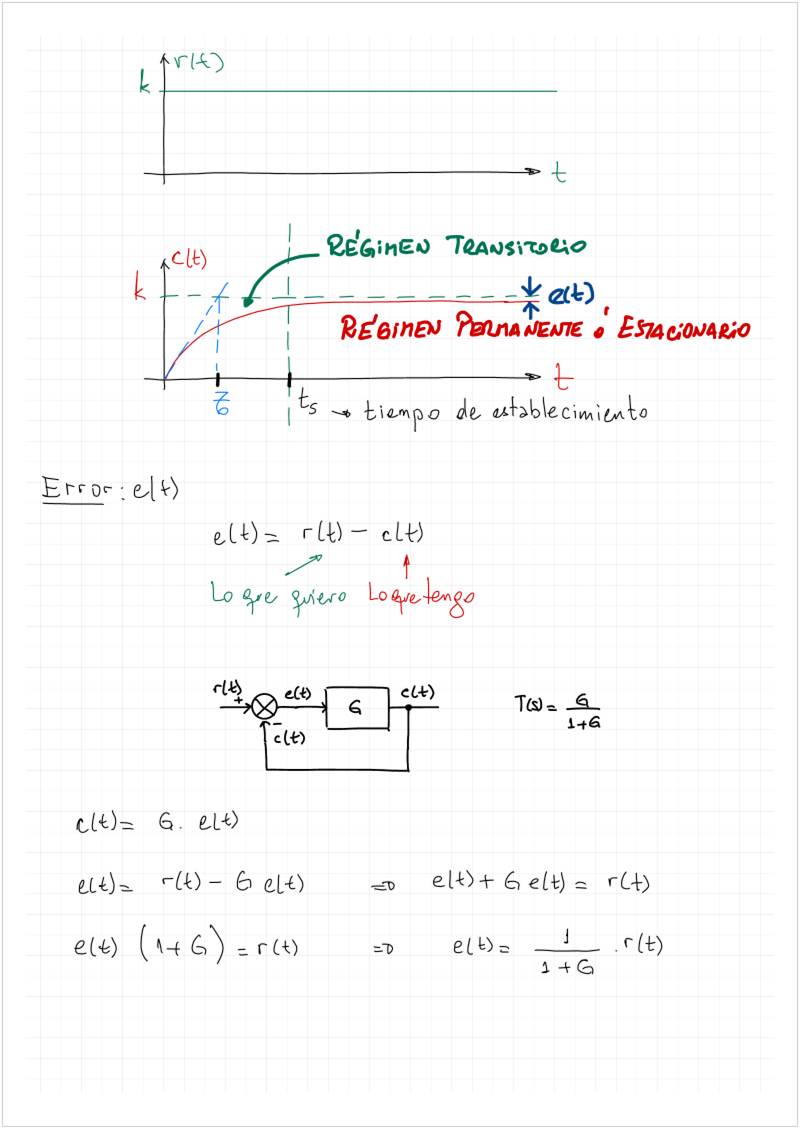 r(t)
k
t
c(t)
RÉGIMEN TRANSITORIO
k
e(t)
RÉGIMEN PERMANENTE ó ESTACIONARIO
t
ts → tiempo de establecimiento
Error: e(t)
e(t) = r(t) - c(t)
Lo que quiero Lo que tengo
r(t) + e(t) G c(t)
- c(t)
T(s) = G / 1+G
c(t) = G . e(t)
e(t) = r(t) - G e(t) ⇒ e(t) + G e(t) = r(t)
e(t) (1+G) = r(t) ⇒ e(t) = 1 / 1+G . r(t)